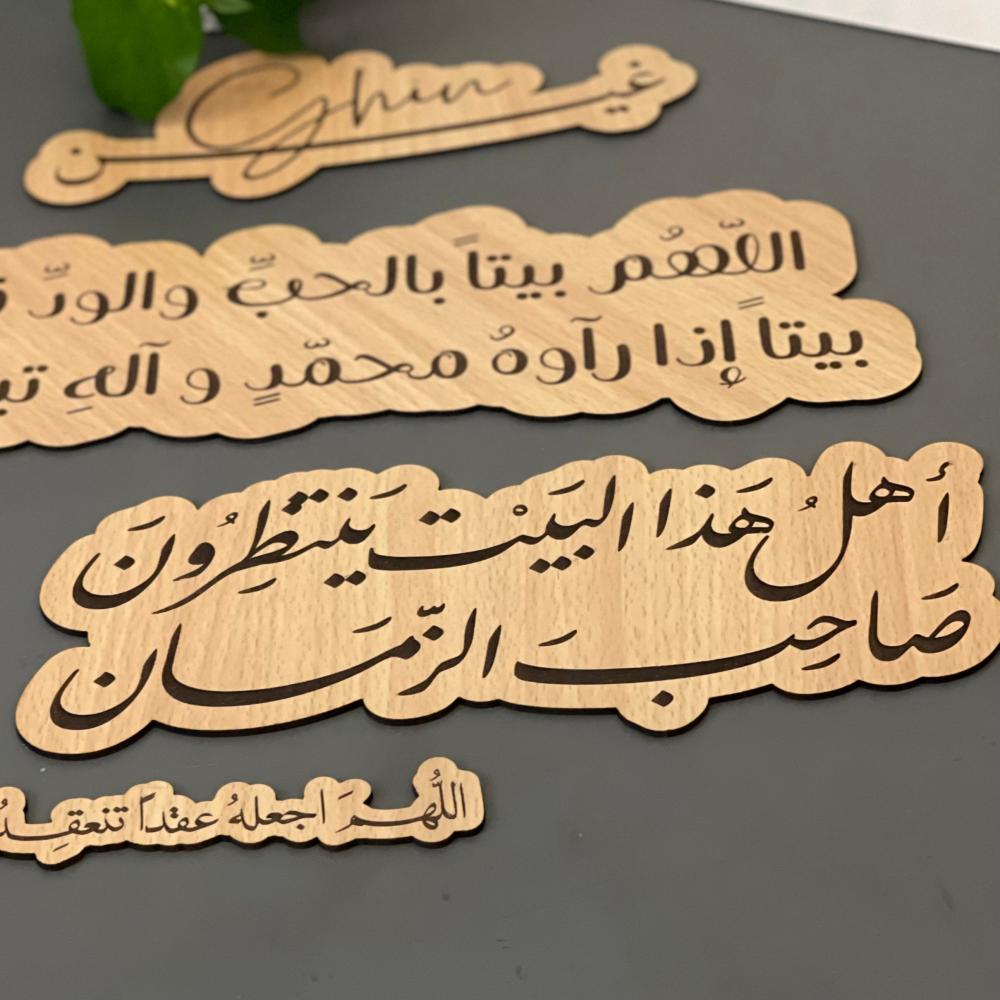 Ghin
غين
اللّهُم بيتاً بالحبِّ والودِّ
بيتاً إذا رآوهُ محمّدٍ و آلهِ
أهلُ هَذا البَيْت يَنتَظِرُونَ
صَاحِبَ الزَّمان
اللّهُمَ اجعلهُ عقداً تنعقِدُ